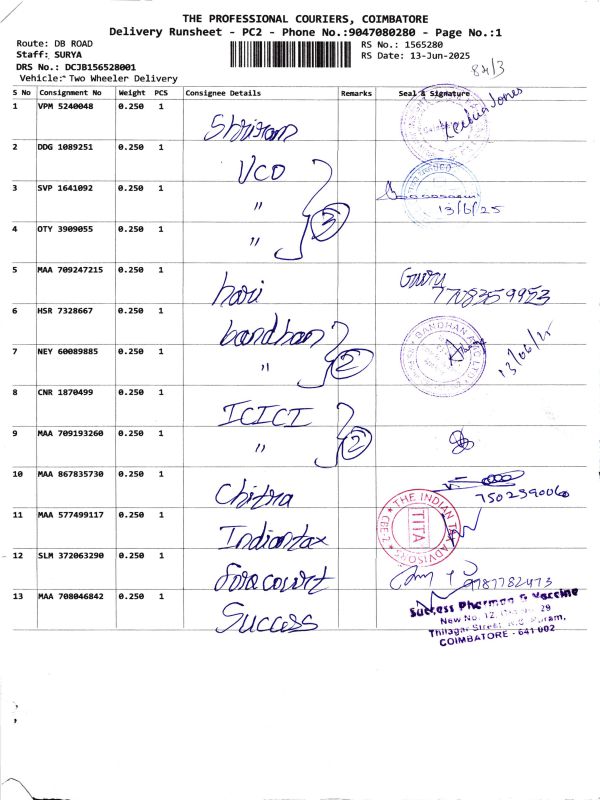 THE PROFESSIONAL COURIERS, COIMBATORE
Delivery Runsheet - PC2 - Phone No.:9047080280 - Page No.:1
Route: DB ROAD
Staff: SURYA
DRS No.: DCJB156528001
Vehicle: Two Wheeler Delivery
RS No.: 1565280
RS Date: 13-Jun-2025
84/3
S No Consignment No Weight PCS Consignee Details Remarks Seal & Signature
1 VPM 5240048 0.250 1 Shriram
2 DDG 1089251 0.250 1 VCO
3 SVP 1641092 0.250 1 " 3 13/6/25
4 OTY 3909055 0.250 1 "
5 MAA 709247215 0.250 1 hari 7708359953
6 HSR 7328667 0.250 1 bandhan
7 NEY 60089885 0.250 1 " 2 13/06/25
8 CNR 1870499 0.250 1 ICICI
9 MAA 709193260 0.250 1 " 2
10 MAA 867835730 0.250 1 Chitra 7502390060
11 MAA 577499117 0.250 1 Indiantax
THE INDIAN TAX ADVISORS
TITA
CBE-2
12 SLM 372063290 0.250 1 Foracourt 9787782473
13 MAA 708046842 0.250 1 Success
Success Pharma & Vaccine
New No. 12, 29
Thilagar Street,
COIMBATORE - 641 002